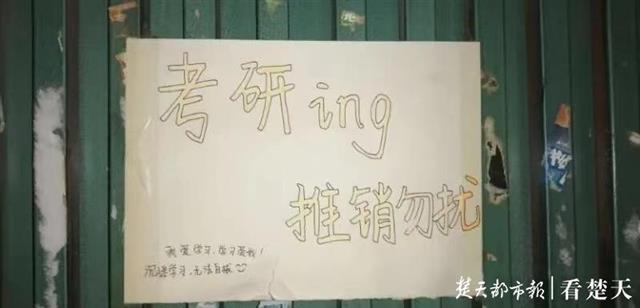 考研ing
推销勿扰
我爱学习，学习爱我！
沉迷学习，无法自拔
楚天都市报 看楚天